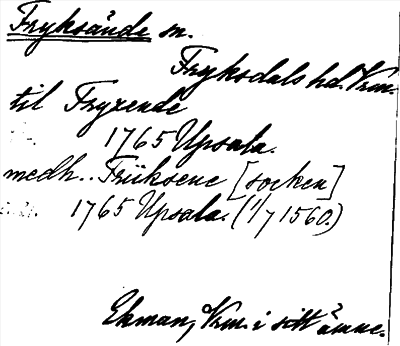 Fryksände sn.
Fryksdals hd. Vrm.
til Fryxende
1765 Upsala.
medh.. Früksene [socken]
1765 Upsala. (1/7 1560.)
Ekman, Vrm. i sitt ämne.